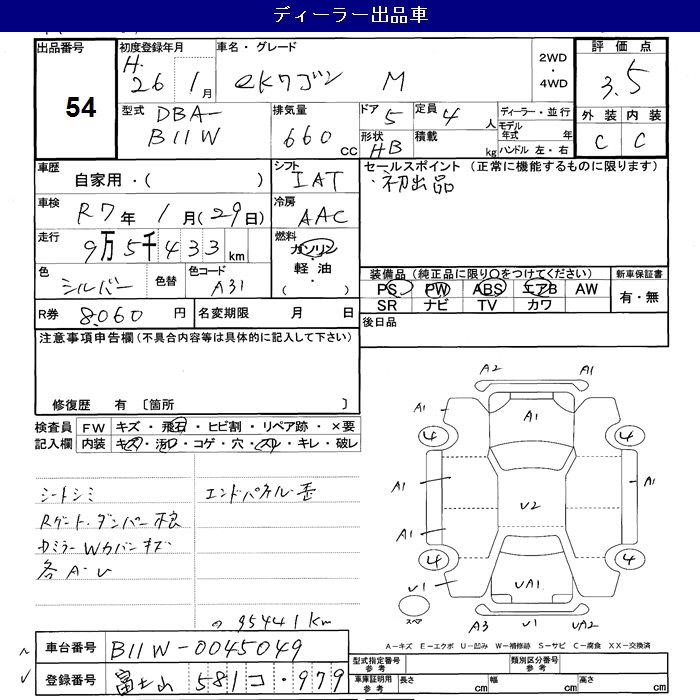 ディーラー出品車
出品番号
54
初度登録年月
H.
26 1月
車名・グレード
eKワゴン M
2WD
・
4WD
評価点
3.5
外装 内装
C C
型式 DBA-
B11W
排気量
660 cc
ドア 5
形状 HB
定員 4人
積載 kg
ディーラー・並行
モデル年式 年
ハンドル 左・右
車歴
自家用・( )
シフト
IAT
セールスポイント (正常に機能するものに限ります)
・初出品
車検
R7年 1月(29日)
冷房
AAC
走行
9万5千433km
燃料
ガソリン
・
軽油
・
( )
色
シルバー
色替
色コード
A31
装備品 (純正品に限り○をつけてください)
PS PW ABS エアB AW
SR ナビ TV カワ
新車保証書
有・無
R券 8060円
名変期限 月 日
後日品
注意事項申告欄 (不具合内容等は具体的に記入して下さい)
修復歴 有 〔箇所 〕
検査員記入欄
FW キズ・飛石・ヒビ割・リペア跡・×要
内装 キズ・汚れ・コゲ・穴・スレ・キレ・破レ
シートシミ
Rゲート・ダンパー不良
カバンキズ
各A-U
エンドパネル歪
95441km
A2 A1
A1 A1 A1
4 4
A1 A1
U2
A1
4 4
U1 UA1
A3 U1 UA2
A-キズ E-エクボ U-凹み W-補修跡 S-サビ C-腐食 XX-交換済
車台番号 B11W-0045049
登録番号 富士山 581 コ・979
型式指定番号 参考
類別区分番号 参考
車庫証明用 参考
長さ cm
幅 cm
高さ cm